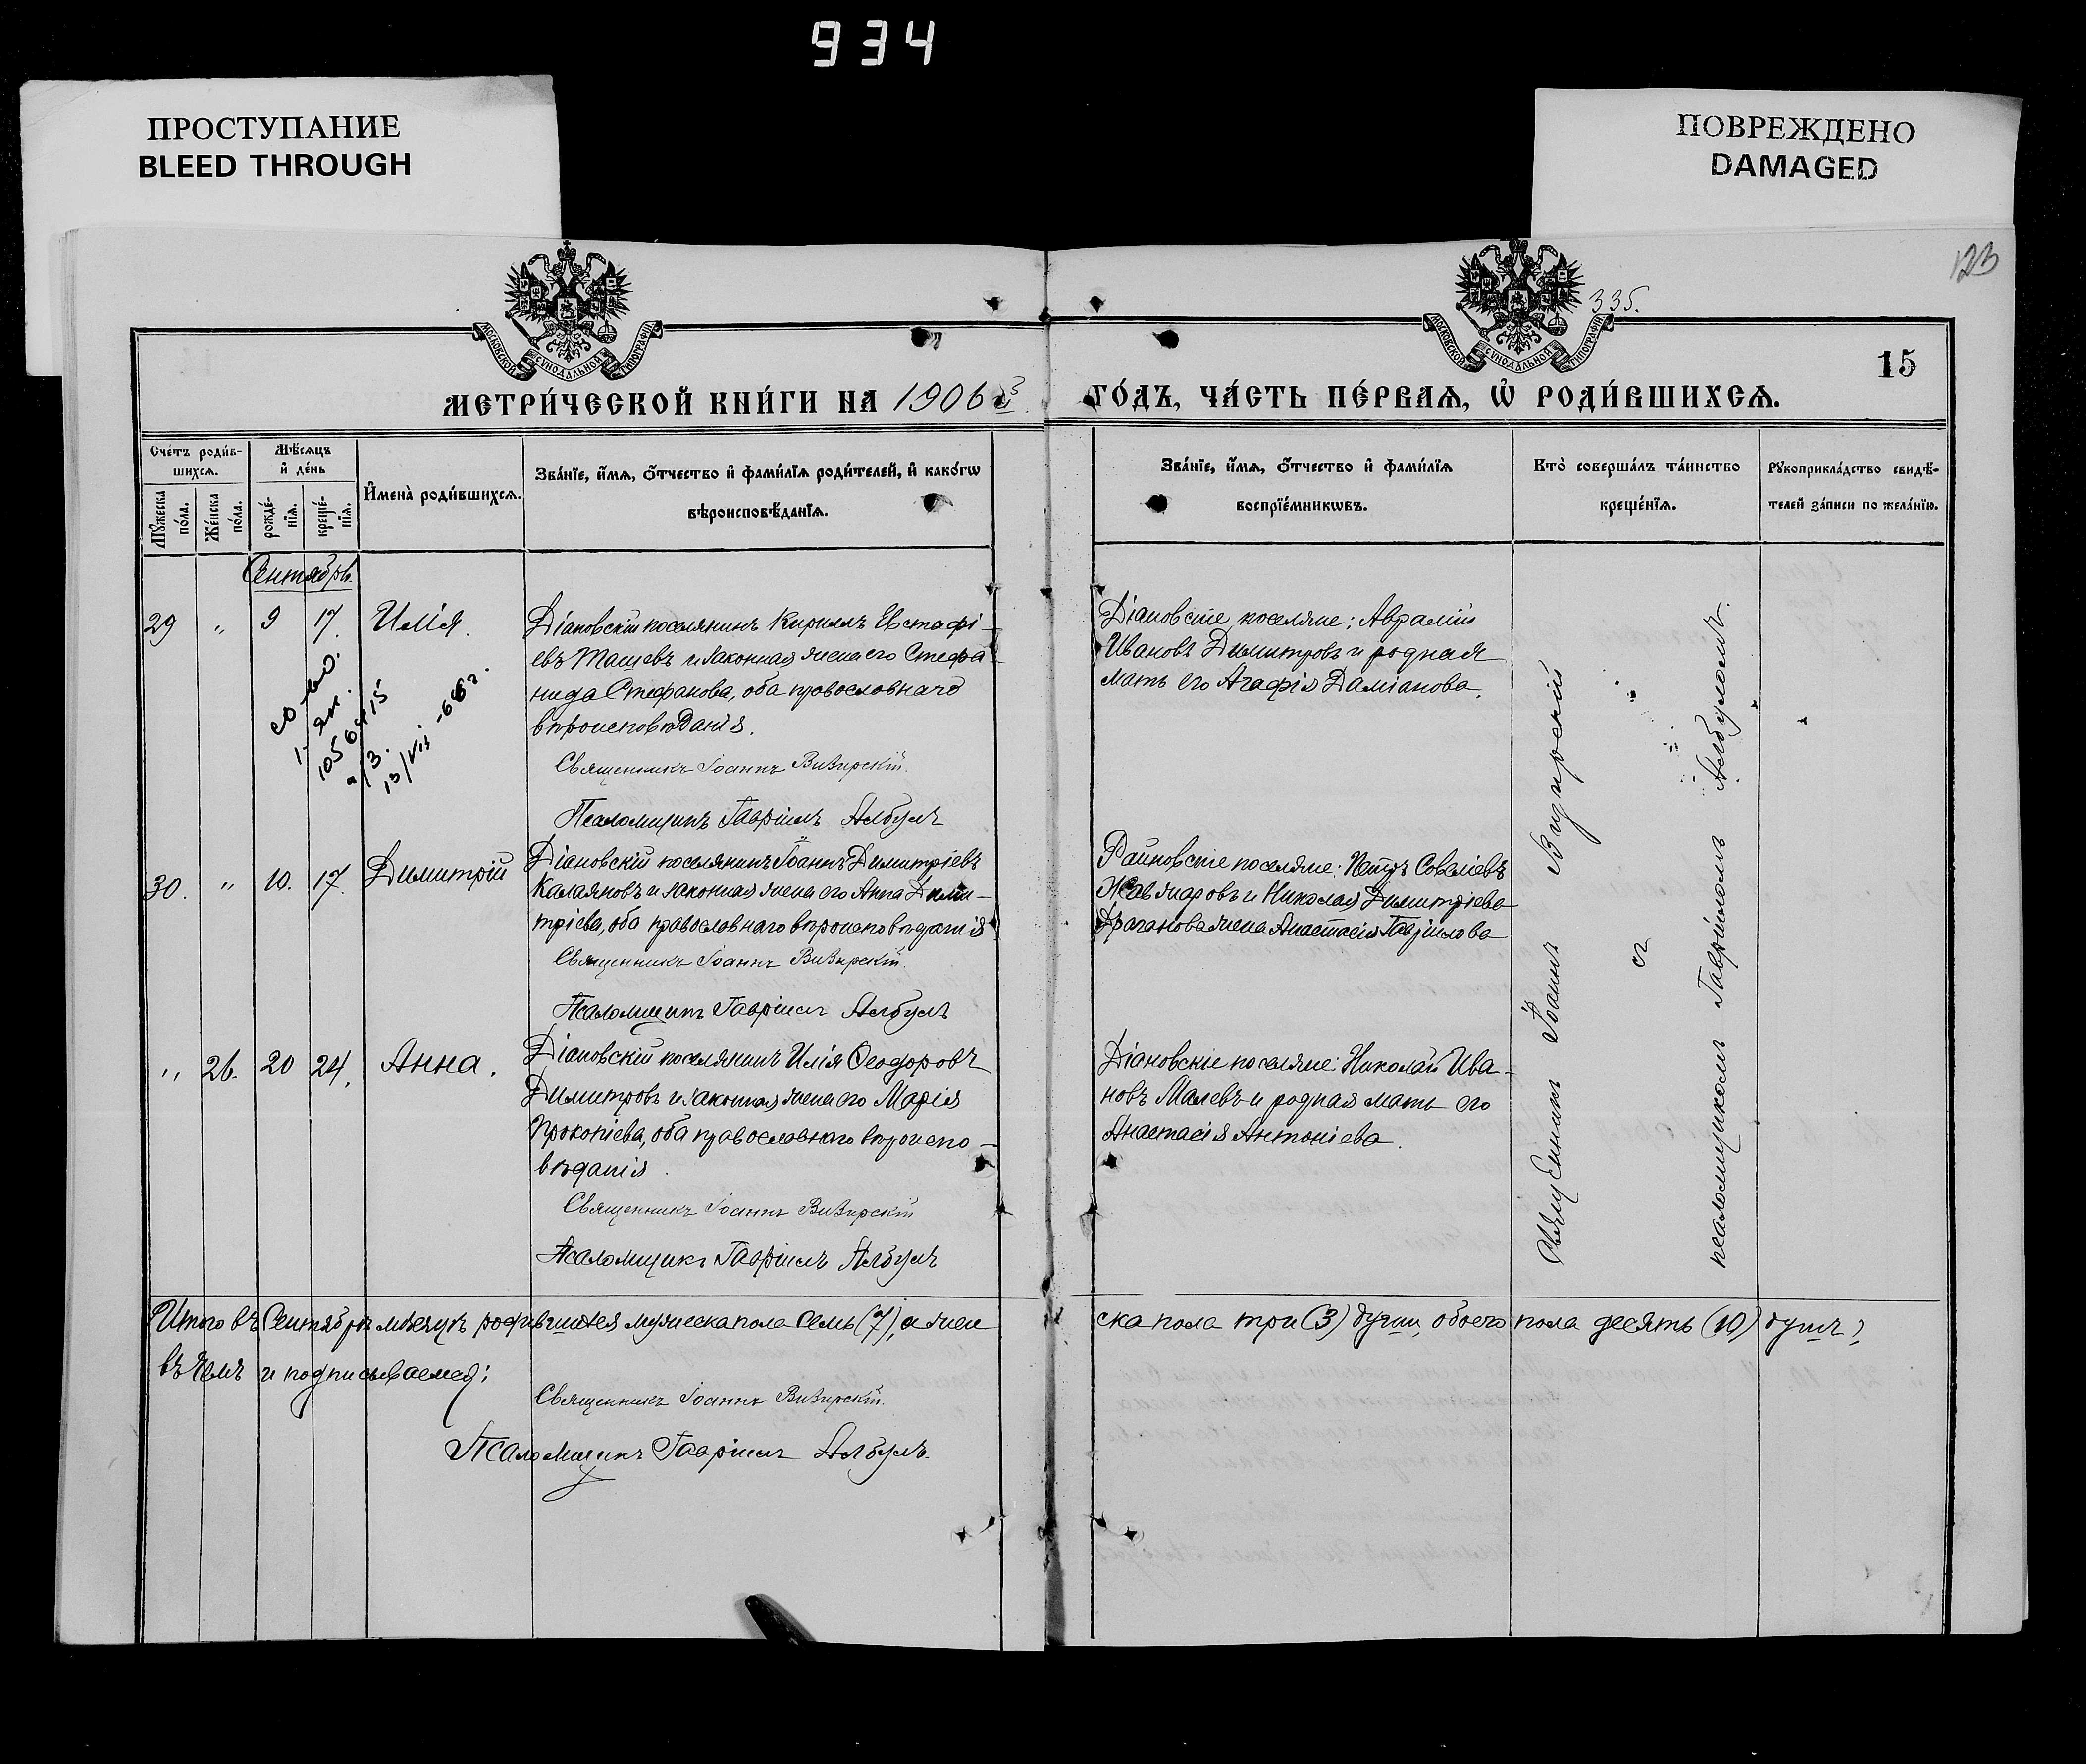 934
ПРОСТУПАНИЕ
BLEED THROUGH
ПОВРЕЖДЕНО
DAMAGED
123
335.
МОСКОВСКОЙ СѴНОДАЛЬНОЙ ТИПОГРАФІИ
МОСКОВСКОЙ СѴНОДАЛЬНОЙ ТИПОГРАФІИ
15
МЕТРИ́ЧЕСКОЙ КНИ́ГИ НА 1906й
ГО́ДЪ, ЧА́СТЬ ПЕ́РВАѦ, Ѡ҆ РОДИ́ВШИХСѦ.
Сче́тъ роди́в-
шихсѧ.
Мꙋ́жеска по́ла.
Же́нска по́ла.
Мѣ́сѧцъ
и҆ де́нь
рожде́-
нїѧ.
креще́-
нїѧ.
И҆мена̀ роди́вшихсѧ.
Зва́нїе, и҆́мѧ, ѻ҆́тчество и҆ фами́лїѧ роди́телей, и҆ како́гѡ
вѣроисповѣ́данїѧ.
Зва́нїе, и҆́мѧ, ѻ҆́тчество и҆ фами́лїѧ
воспрїе́мникѡвъ.
Кто̀ соверша́лъ та́инство
креще́нїѧ.
Рꙋкоприкла́дство свидѣ́-
телей за́писи по жела́нїю.
Сентябрь.
29 " 9 17. Илія.
Діановскій поселянинъ Кириллъ Евстафі-
евъ Ташевъ и законная жена его Стефа-
нида Стефанова, оба православнаго
вѣроисповѣданія.
Священникъ Іоаннъ Визирскій.
Псаломщикъ Гавріилъ Албулъ
Діановскіе поселяне: Авраамій
Ивановъ Димитровъ и родная
мать его Агафія Даміанова.
13/VII-66г.
30. " 10. 17. Димитрій
Діановскій поселянинъ Іоаннъ Димитріевъ
Калаяновъ и законная жена его Анна Дими-
тріева, оба православнаго вѣроисповѣданія
Священникъ Іоаннъ Визирскій.
Псаломщикъ Гавріилъ Албулъ
поселяне: Петръ
и Николая Димитріева
Драганова жена Анастасія Гавріилова
" 26. 20 24. Анна.
Діановскій поселянинъ Илія Ѳеодоровъ
Димитровъ и законная жена его Марія
Прокопіева, оба православнаго вѣроиспо-
вѣданія.
Священникъ Іоаннъ Визирскій
Псаломщикъ Гавріилъ Албулъ
Діановскіе поселяне: Николай Ива-
новъ Малевъ и родная мать его
Анастасія Антоніева.
Священникъ Іоаннъ Визирскій
съ
псаломщикомъ Гавріиломъ Албуломъ.
Итого въ Сентябрѣ мѣсяцѣ родившихся мужеска пола семь (7), а жен
ска пола три (3) души, обоего пола десять (10) душъ,
въ чемъ и подписываемся:
Священникъ Іоаннъ Визирскій.
Псаломщикъ Гавріилъ Албулъ.